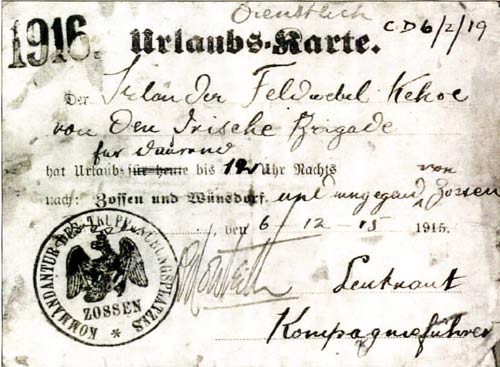 Dienstlich
CD6/2/19
1916. Urlaubs-Karte.
Der Irlander Feldwebel Kehoe
von den Irische Brigade
für dauernd
hat Urlaub für heute bis 12 Uhr Nachts
nach: Zossen und Wünsdorf. und umgegend von Zossen
, den 6 - 12 - 15 1915.
KOMMANDANTUR DES TRUPPENÜBUNGSPLATZES
ZOSSEN
Monteith
Leutnant
Kompagnieführer